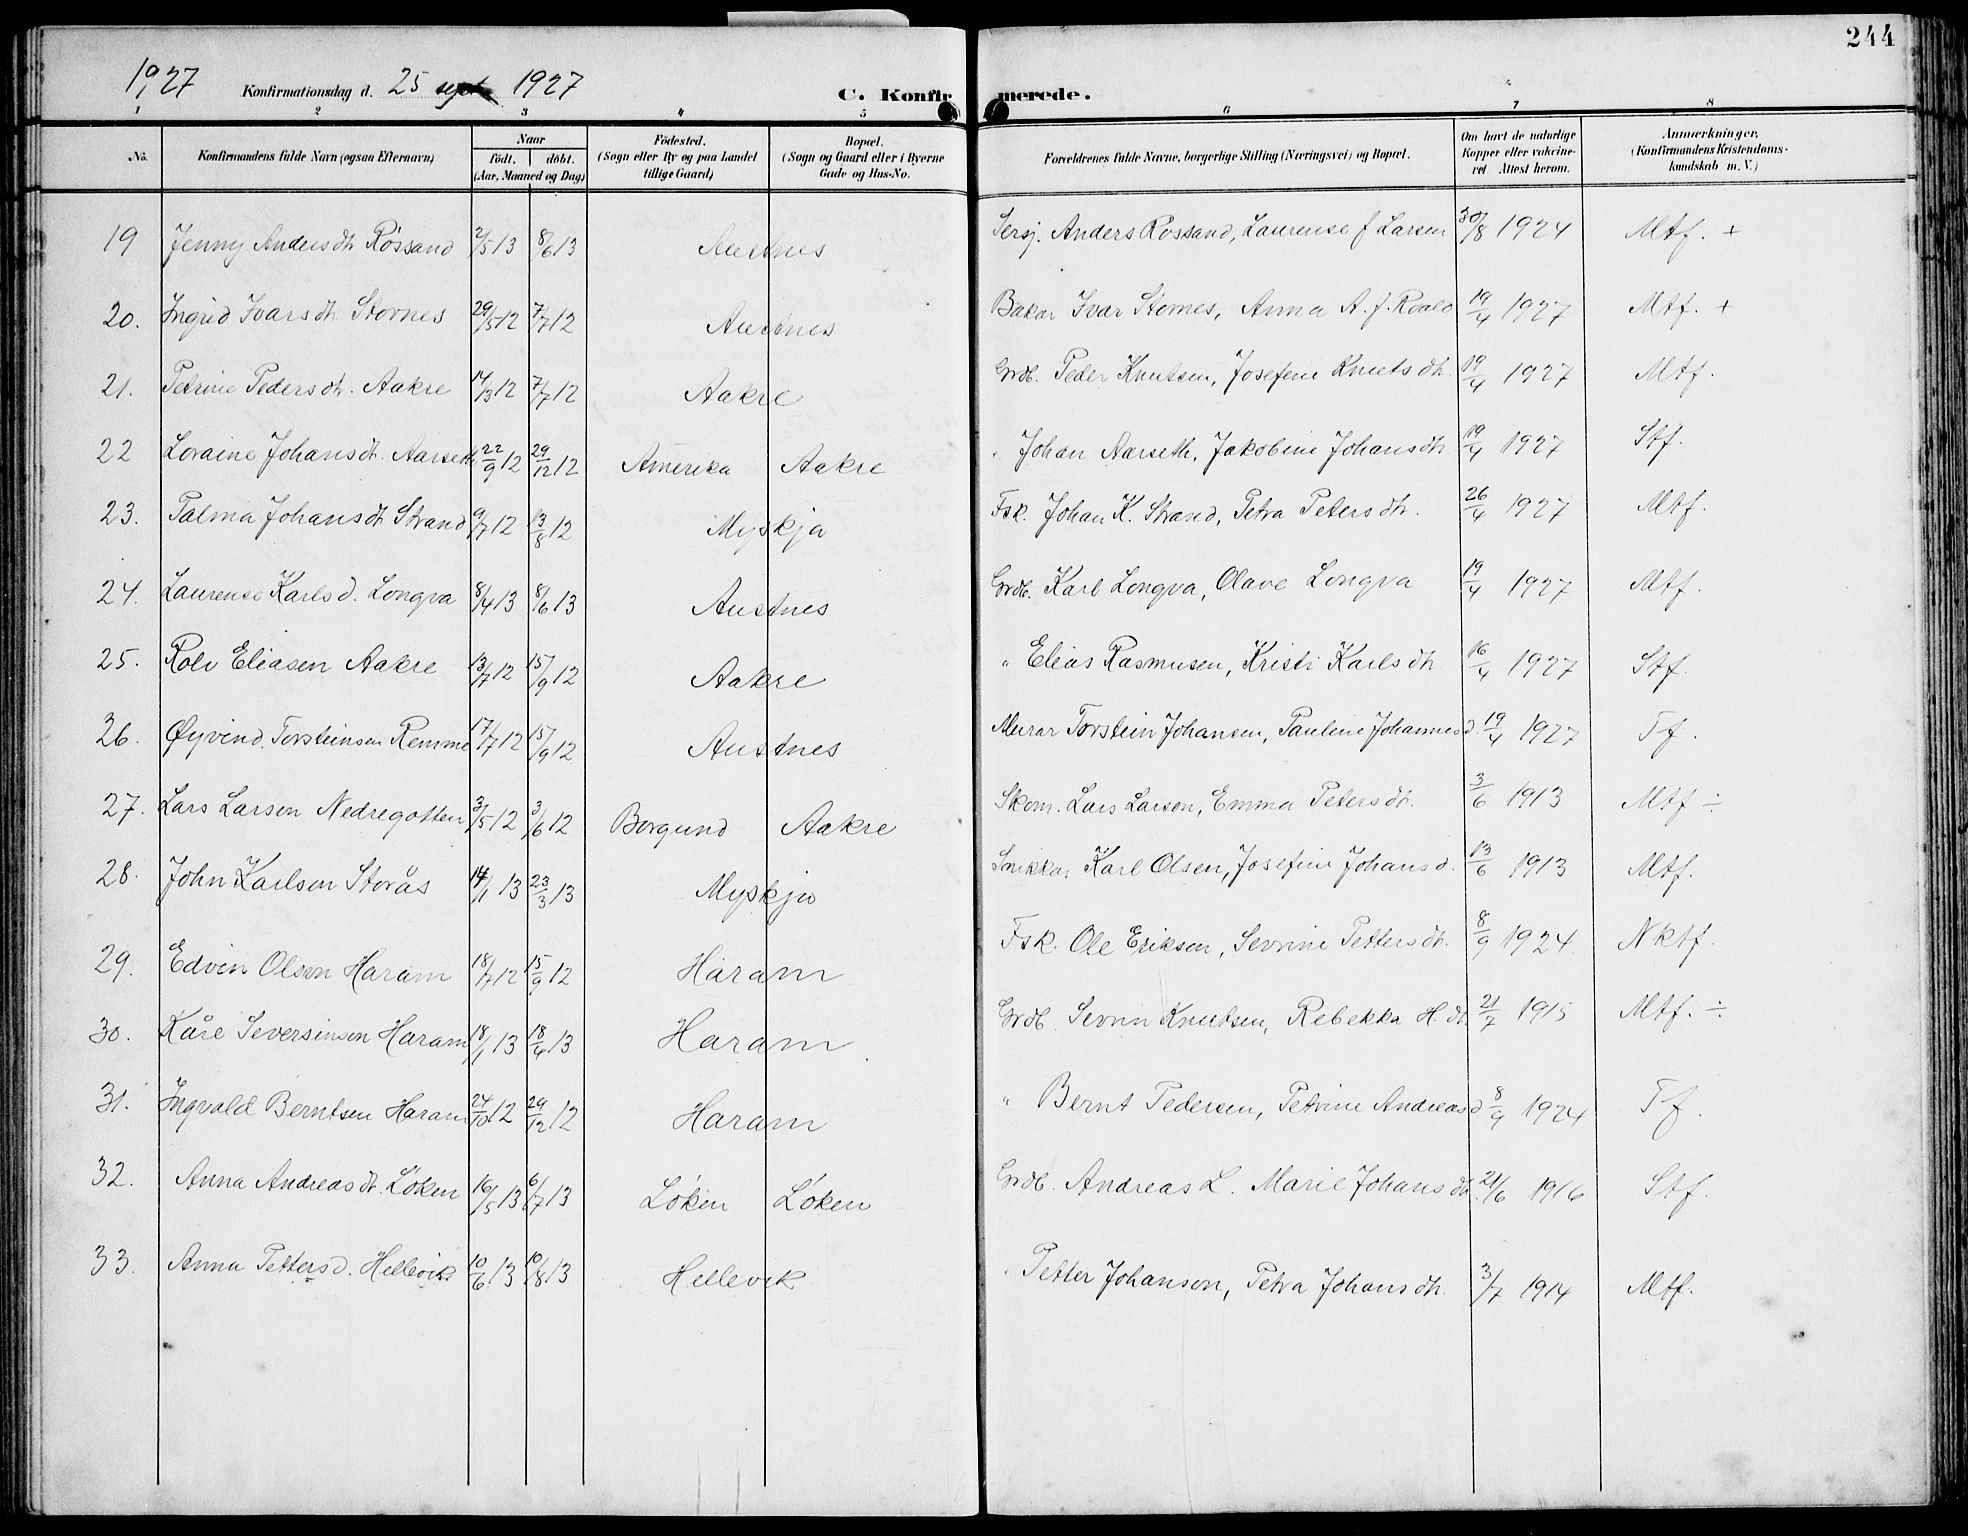 244
1927 Konfirmationsdag d. 25 sept. 1927 C. Konfirmerede.
1 2 3 4 5 6 7 8
No. Konfirmandens fulde Navn (ogsaa Efternavn) Naar født. døbt. (Aar, Maaned og Dag) Födested. (Sogn eller By og paa Landet tillige Gaard) Bopæl. (Sogn og Gaard eller i Byerne Gade og Hus-No. Forældrenes fulde Navne, borgerlige Stilling (Næringsvei) og Bopæl. Om havt de naturlige Kopper eller vakcineret Attest herom. Anmærkninger, (Konfirmandens Kristendomskundskab m. V.)
19 Jenny Andersdtr Røssand 2/5 13 8/6 13 Austnes Sersj. Anders Røssand, Laurense f Larsen 30/8 1924 Mtf. +
20. Ingrid Ivarsdtr Stornes 29/5 12 7/7 12 Austnes Bakar Ivar Stornes, Anna A. f. Roald 19/4 1927 Mtf. +
21. Petrine Pedersdtr. Aakre 14/3 12 7/7 12 Aakre Grdb. Peder Knutsen, Josefine Knutsdtr. 19/4 1927 Mtf.
22 Loraine Johansdtr. Aarseth 22/9 12 29/12 12 Amerika Aakre " Johan Aarseth, Jakobine Johansdtr 19/4 1927 Stf.
23. Palma Johansdtr Strand 9/7 12 13/8 12 Myskja Fsk. Johan K. Strand, Petra Petersdtr. 26/4 1927 Mtf.
24. Laurense Karlsd. Longva 8/4 13 8/6 13 Austnes Grdb. Karl Longva, Olave Longva 19/4 1927 Mtf.
25. Rolv Eliasen Aakre 13/7 12 15/9 12 Aakre " Elias Rasmusen, Kristi Karlsdtr 16/4 1927 Stf.
26. Øyvind Torsteinsen Remme 17/7 12 15/9 12 Austnes Murar Torstein Johansen, Pauline Johannesd. 19/4 1927 Tf.
27. Lars Larsen Nedregotten 3/5 12 3/6 12 Borgund Aakre Skom. Lars Larsen, Emma Petersdtr. 3/6 1913 Mtf ÷
28. John Karlsen Storås 14/1 13 23/3 13 Myskja Snikkar Karl Olsen, Josefine Johansd. 13/6 1913 Mtf.
29. Edvin Olsen Haram 18/7 12 15/9 12 Haram Fsk. Ole Eriksen, Sevrine Pettersdtr. 8/9 1924. Nktf.
30. Kåre Seversinsen Haram 18/1 13 18/4 13 Haram Grdb. Sevrin Knutsen, Rebekka H. dtr. 21/7 1915 Mtf. ÷
31. Ingvald Berntsen Haram 24/10 12 29/12 12 Haram " Bernt Pedersen, Petrine Andreasd 8/9 1924 Tf.
32. Anna Andreasdtr. Løken 16/5 13 6/7 13 Løken Løken Grdb. Andreas L. Marie Johansdtr. 21/6 1916 Stf.
33. Anna Pettersd. Hellevik 10/6 13 10/8 13 Hellevik " Petter Johansen, Petra Johansdtr. 3/7 1914 Mtf.